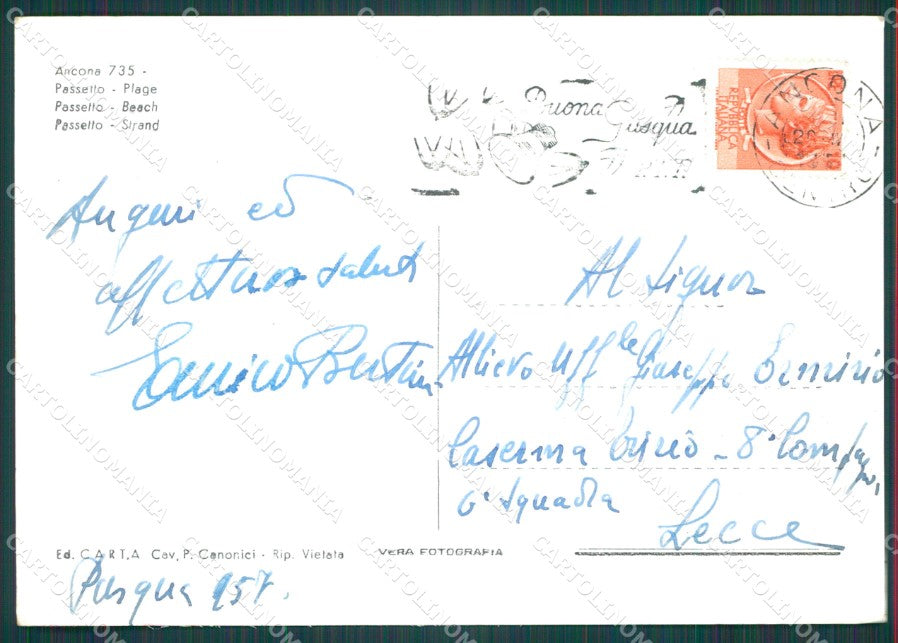 Ancona 735 -
Passetto - Plage
Passetto - Beach
Passetto - Strand
Buona Pasqua
REPVBBLICA
ITALIANA
ANCONA
Auguri ed
affettuosi saluti
Enrico Bertini
Al Signor
Allievo Uff.le Giuseppe
Caserma - 8ª Compagn.
6ª Squadra
Lecce
Ed. C.A.R.T.A. Cav. P. Canonici - Rip. Vietata
VERA FOTOGRAFIA
Pasqua 957.
CARTOLINOMANIA